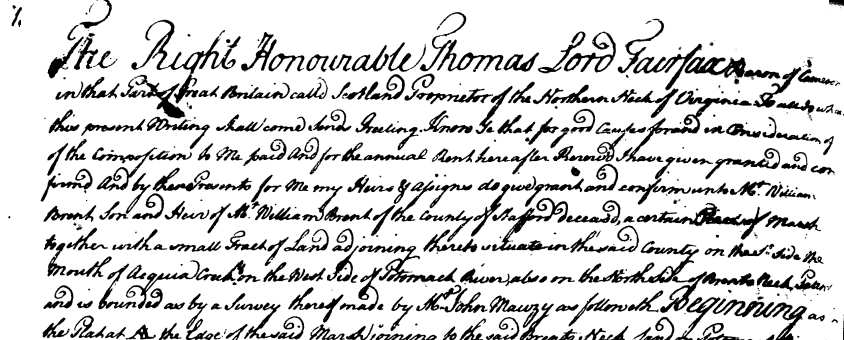 The Right Honourable Thomas Lord Fairfax Baron of Cameron
in that Part of Great Britain called Scotland Proprietor of the Northern Neck of Virginia To all to whom
this present Writing shall come Sends Greeting Know Ye that for good Causes for and in Consideration of
of the Composition to Me paid And for the annual Rent hereafter Reserv'd I have given granted and con
firm'd And by these Presents for Me my Heirs & assignes do give grant and confirm unto Mr. William
Brent Son and Heir of Mr. William Brent of the County of Stafford deceas'd, a certain of Marsh
together with a small Tract of Land adjoining thereto situate in the said County on the So. Side the
Mouth of Acquia Creek, on the West Side of Potomack River, also on the North Side of Brents Neck,
and is bounded as by a Survey thereof made by Mr. John Mauzy as followeth Beginning as
the Plat at A the Edge of the said Marsh joining to the said Brents Neck